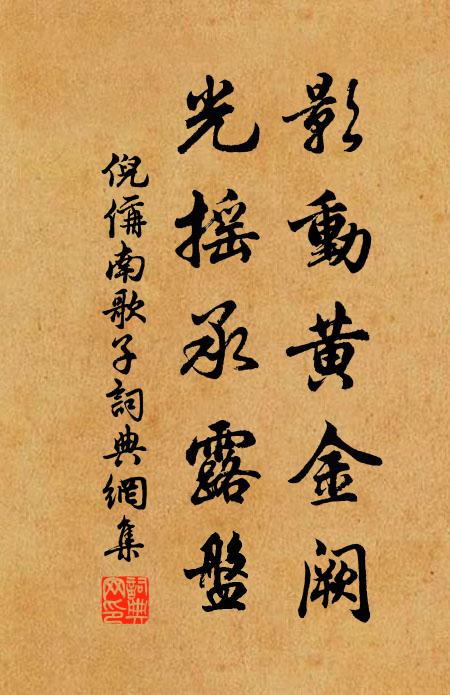 影動黄金闕
光搖承露盤
倪偁南歌子詞典網集
詞典網印